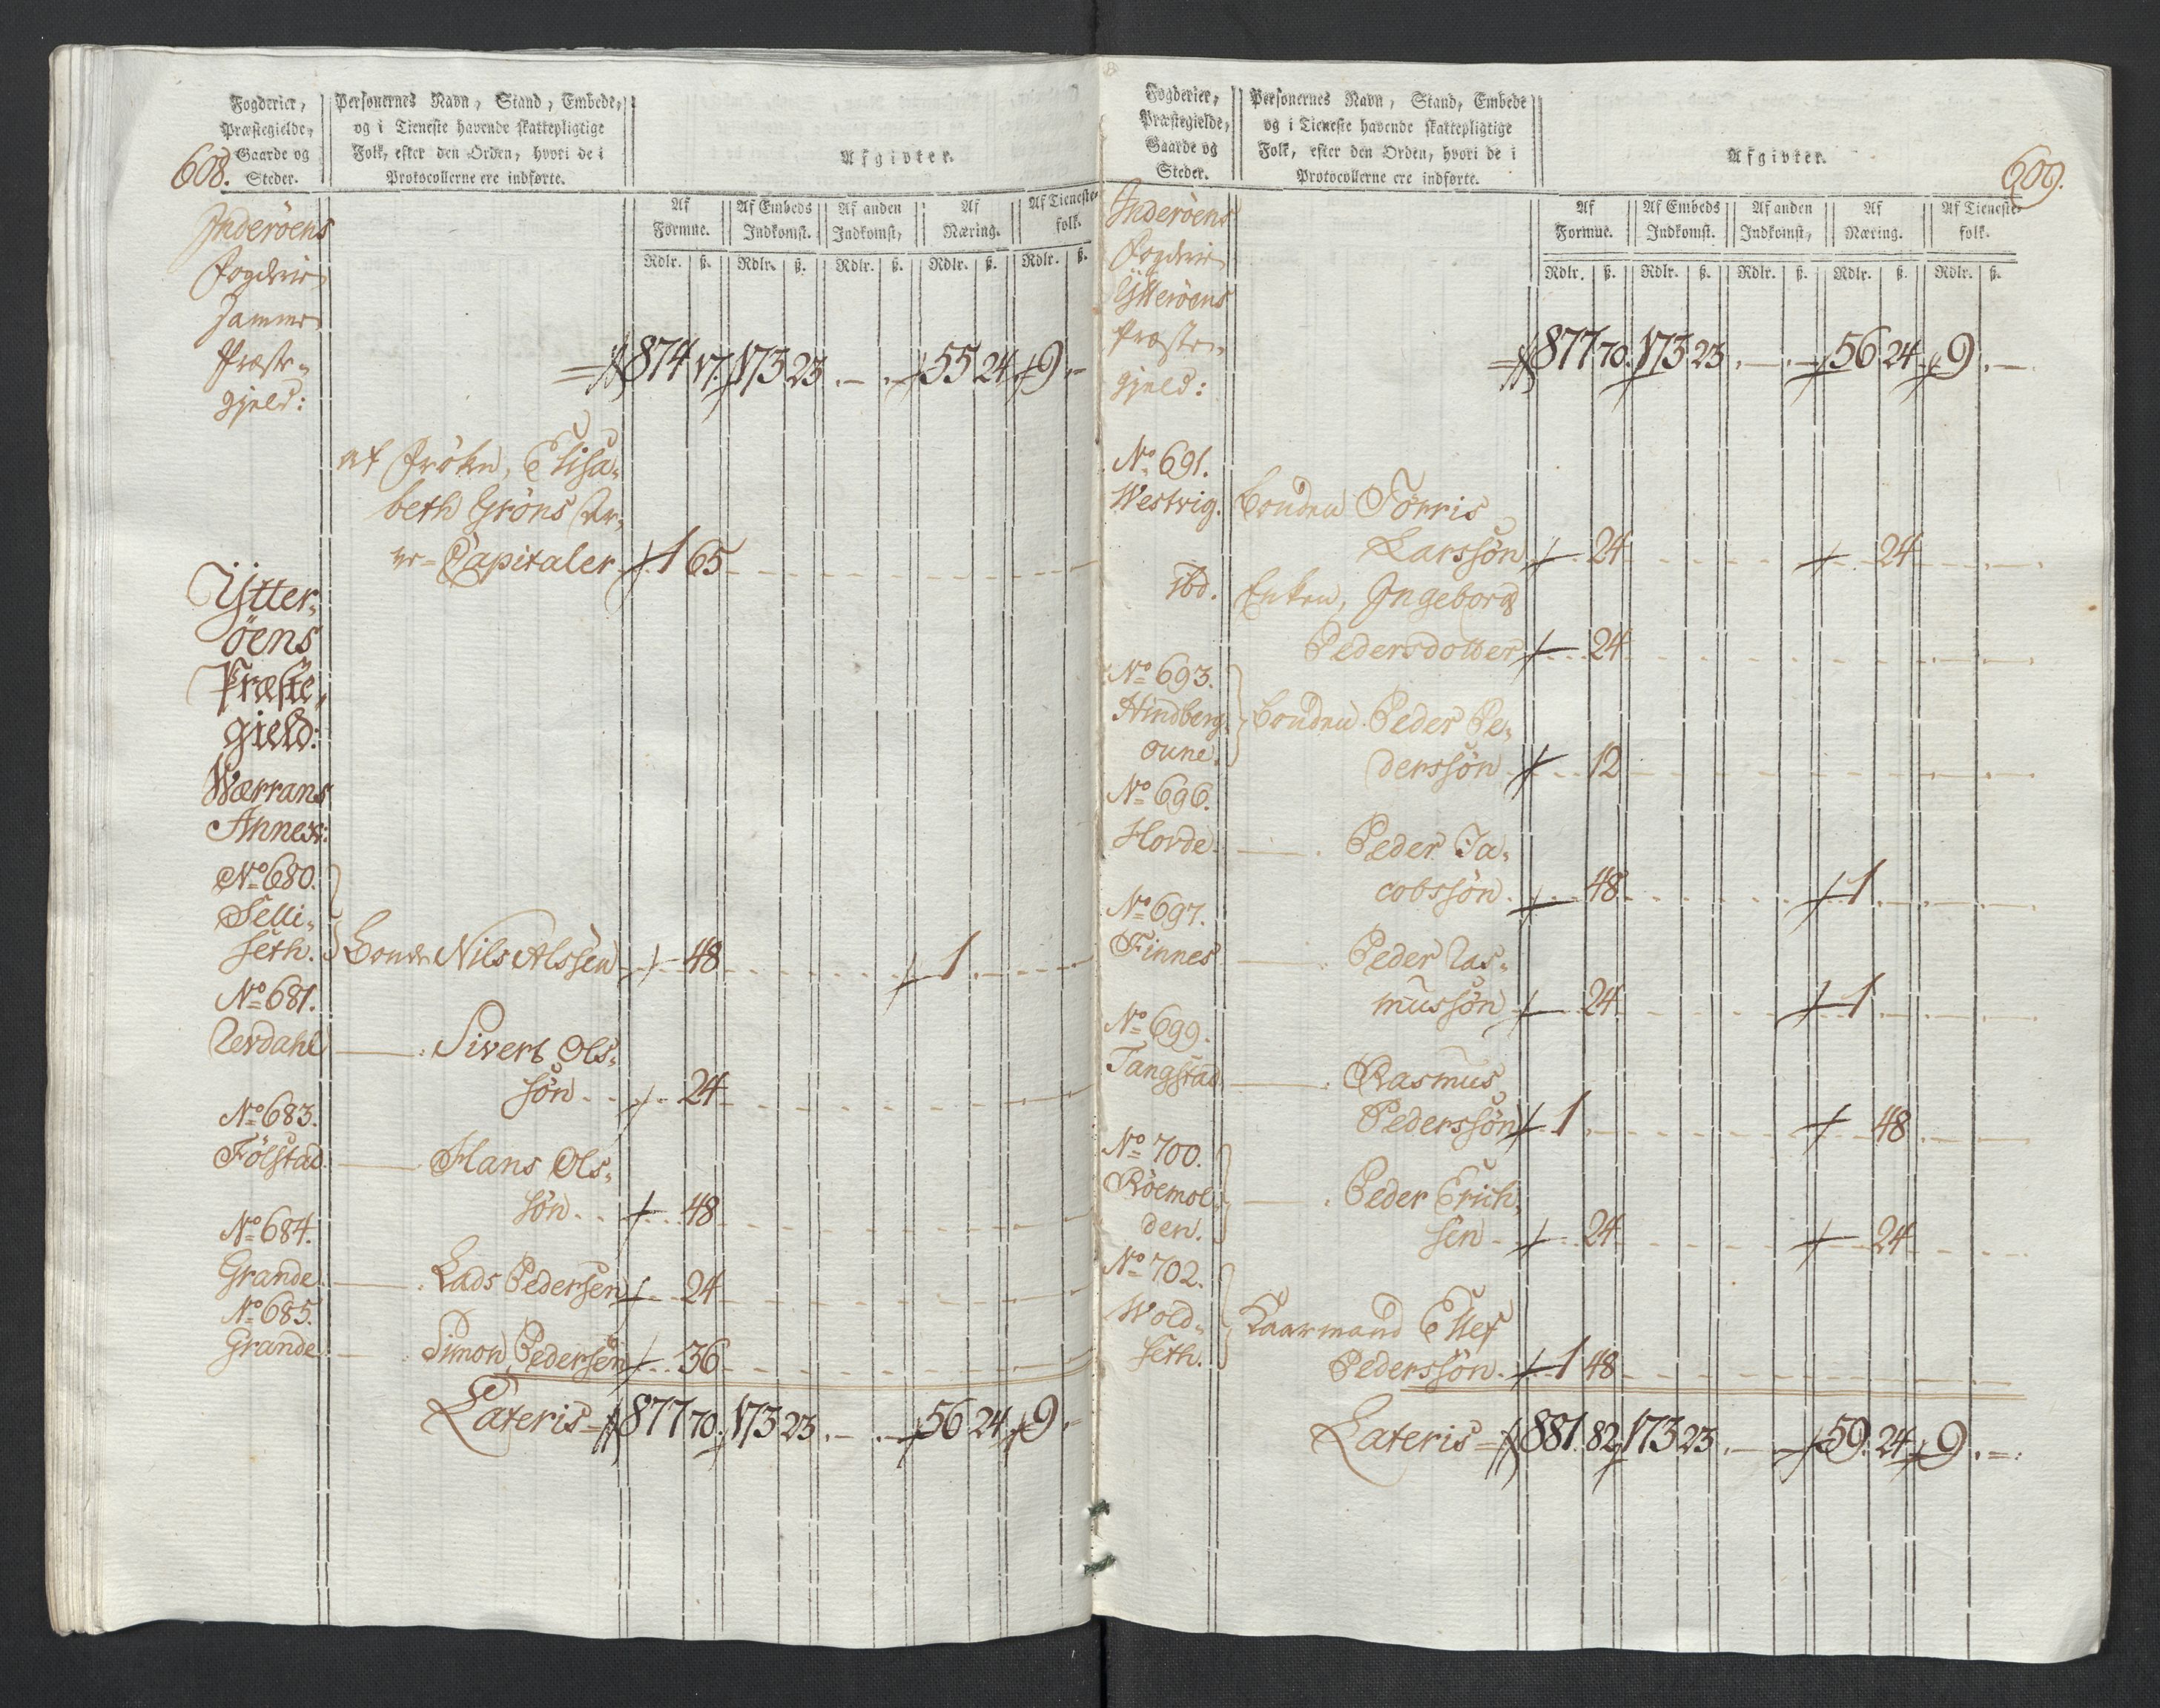 608.
Fogderier,
Præstegielde,
Gaarde og
Steder.
Personernes Navn, Stand, Embede,
og i Tieneste havende skattepligtige
Folk, efter den Orden, hvori de i
Protocollerne ere indførte.
Afgivter.
Af Formue.
Af Embeds Indkomst.
Af anden Indkomst,
Af Næring.
Af Tieneste-folk.
Rdlr. ß. Rdlr. ß. Rdlr. ß. Rdlr. ß. Rdlr. ß.
Inderöens
Fogderie
Præste-
gjeld:
874 17. 173 23 . — . — 55 24 9 . —
af Frökn, Elisa-
beth Gröns Ar-
ve-Capitaler 1 65
Ytter-
öens
Præste-
gield:
Wærrans
Annex:
No 680.
Selli-
seth. Bonde Nils Alssen 48 1
No 681.
Sivert Ols-
sön 24
No 683.
Fölstad. — Hans Ols-
sön 48
No 684.
Grande — Lads Pedersen 24
No 685.
Grande — Simon Pedersen 36
Lateris 877 70. 173 23 . — . — 56 24 9 . —
609.
Fogderier,
Præstegielde,
Gaarde og
Steder.
Personernes Navn, Stand, Embede
og i Tieneste havende skattepligtige
Folk, efter den Orden, hvori de i
Protocollerne ere indførte.
Afgivter.
Af Formue.
Af Embeds Indkomst.
Af anden Indkomst,
Af Næring.
Af Tieneste-folk.
Rdlr. ß. Rdlr. ß. Rdlr. ß. Rdlr. ß. Rdlr. ß.
Inderöens
Fogderie
Ytteröens
Præste-
gjeld:
877 70. 173 23 . — . — 56 24 9 . —
No 691.
Westvig. Bonden Törris
Larssön 24 24
ibd. Enken, Ingeborg
Pedersdotter 24
No 693.
Hindberg- Bonden Peder Pe-
oune. derssön 12
No 696.
Horde. — Peder Ja-
cobssön 48 1
No 697.
Finnes — Peder Ras-
mussön 24 1
No 699.
Tangstad — Rasmus
Perderssön 1 48
No 700.
Röemol- — Peder Erich-
den. sen 24 24
No 702.
Wold- Ellef
seth. Pederssön 1 48
Lateris 881. 82 173 23 . — — 59. 24 9 . —